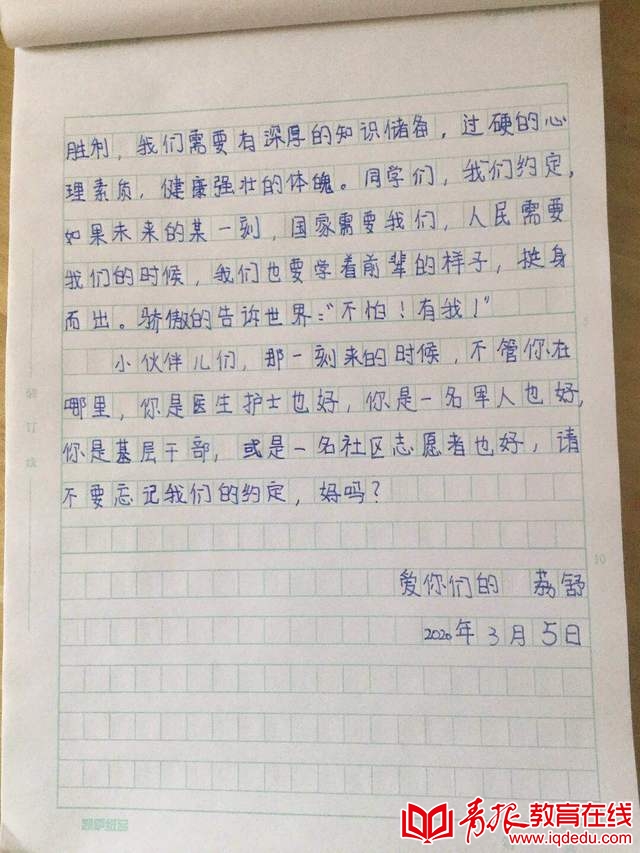 胜利，我们需要有深厚的知识储备，过硬的心
理素质，健康强壮的体魄。同学们，我们约定，
如果未来的某一刻，国家需要我们，人民需要
我们的时候，我们也要学着前辈的样子，挺身
而出。骄傲的告诉世界：“不怕！有我！”
小伙伴儿们，那一刻来的时候，不管你在
哪里，你是医生护士也好，你是一名军人也好，
你是基层干部，或是一名社区志愿者也好，请
不要忘记我们的约定，好吗？
爱你们的 荔舒
2020年3月5日
装订线
10
青报教育在线
www.iqdedu.com